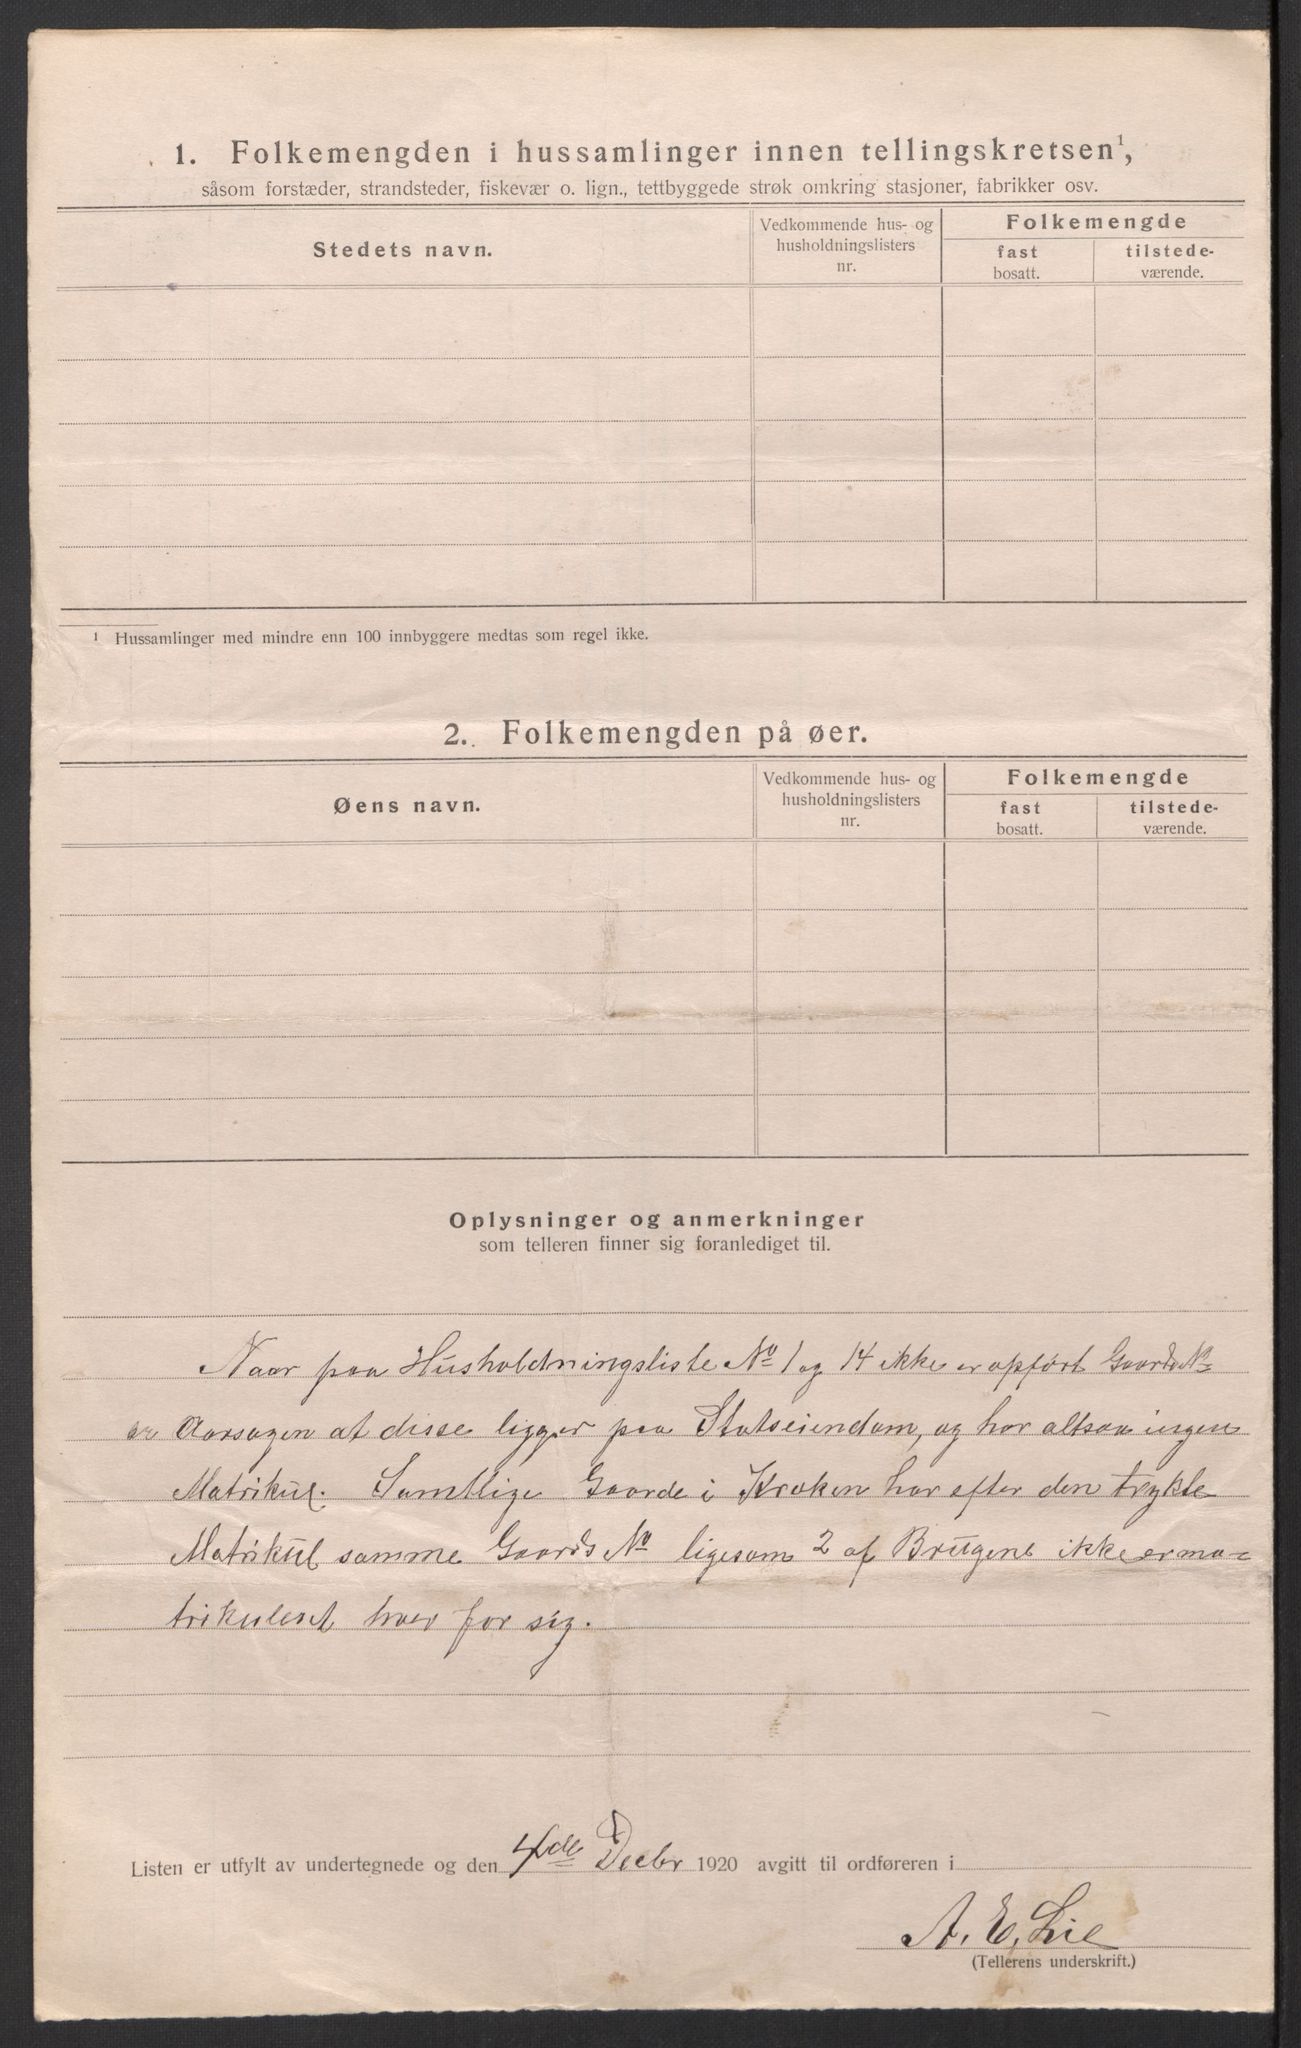 1. Folkemengden i hussamlinger innen tellingskretsen¹,
såsom forstæder, strandsteder, fiskevær o. lign., tettbyggede strøk omkring stasjoner, fabrikker osv.
Stedets navn.
Vedkommende hus- og
husholdningslisters
nr.
Folkemengde
fast
bosatt.
tilstede-
værende.
¹ Hussamlinger med mindre enn 100 innbyggere medtas som regel ikke.
2. Folkemengden på øer.
Øens navn.
Vedkommende hus- og
husholdningslisters
nr.
Folkemengde
fast
bosatt.
tilstede-
værende.
Oplysninger og anmerkninger
som telleren finner sig foranlediget til.
Naar paa Husholdningsliste No 1 og 14 ikke er opført Gaards No
er Aarsagen at disse ligger paa Statseiendom, og har altsaa ingen
Matrikul. Samtlige Gaarde i Kroken har efter den trykte
Matrikul samme Gaards No ligesom 2 af Brugene ikke er ma=
trikuleret hver for sig.
Listen er utfylt av undertegnede og den 4de Decbr 1920 avgitt til ordføreren i
A. E. Lie
(Tellerens underskrift.)